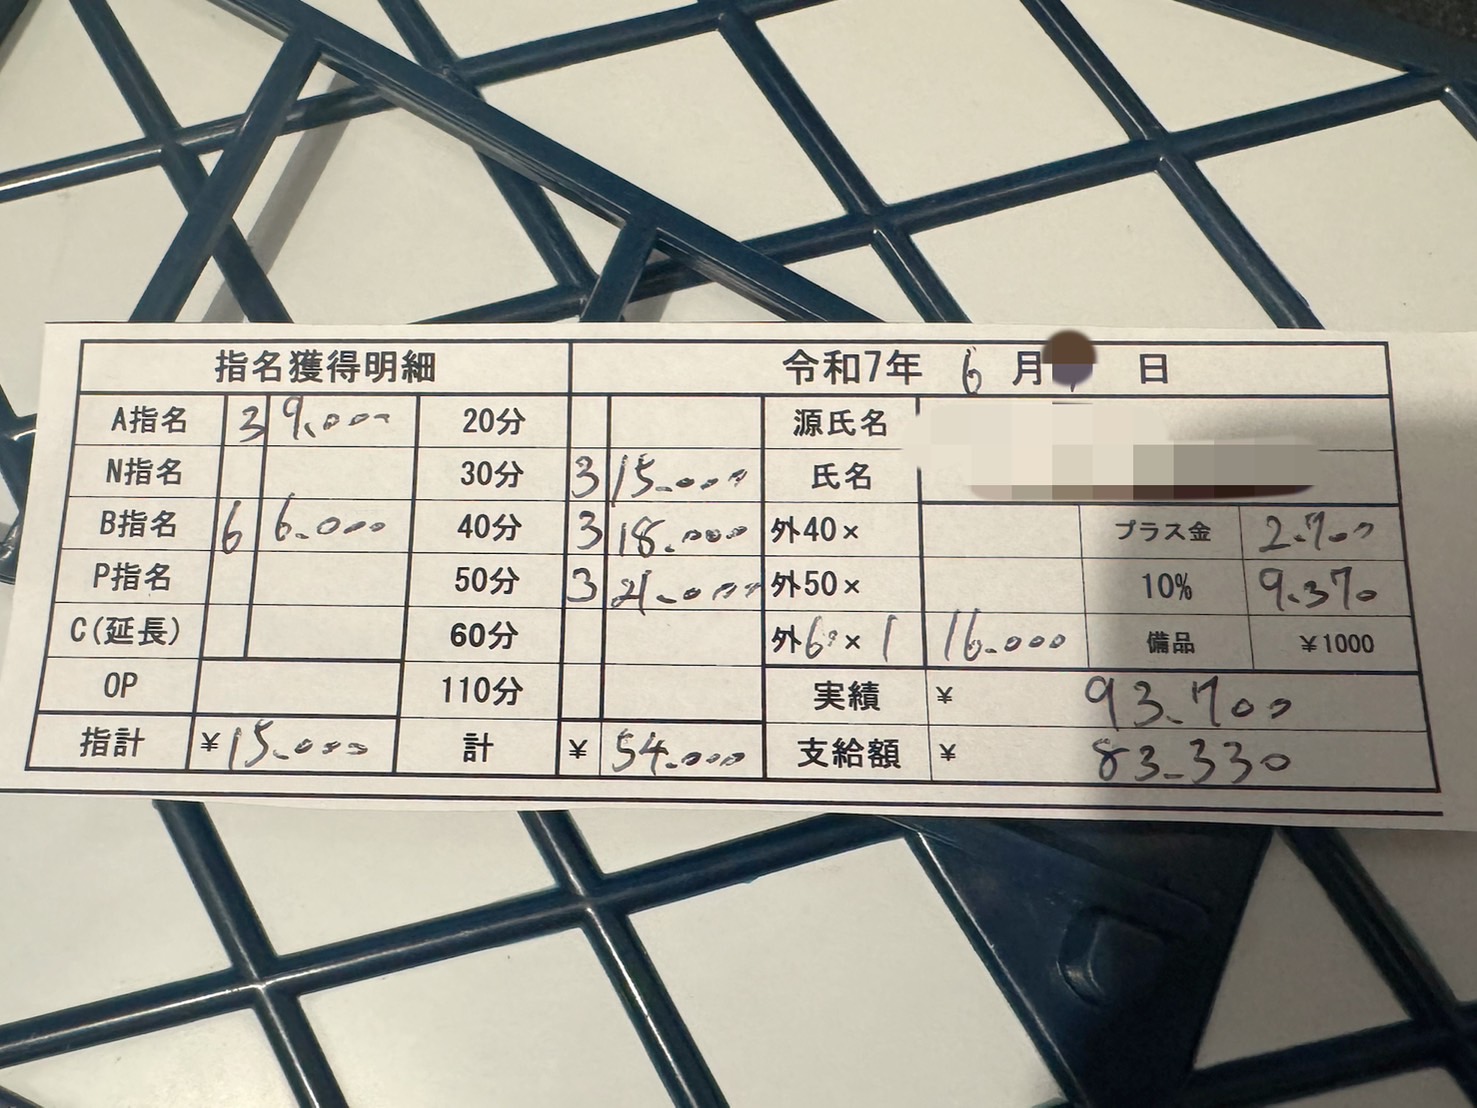 指名獲得明細 令和7年 6月 日
A指名 3 9.000 20分 源氏名
N指名 30分 3 15.000 氏名
B指名 6 6.000 40分 3 18.000 外40× プラス金 2.700
P指名 50分 3 21.000 外50× 10% 9.370
C(延長) 60分 外60×1 16.000 備品 ¥1000
OP 110分 実績 ¥ 93.700
指計 ¥15.000 計 ¥ 54.000 支給額 ¥ 83.330